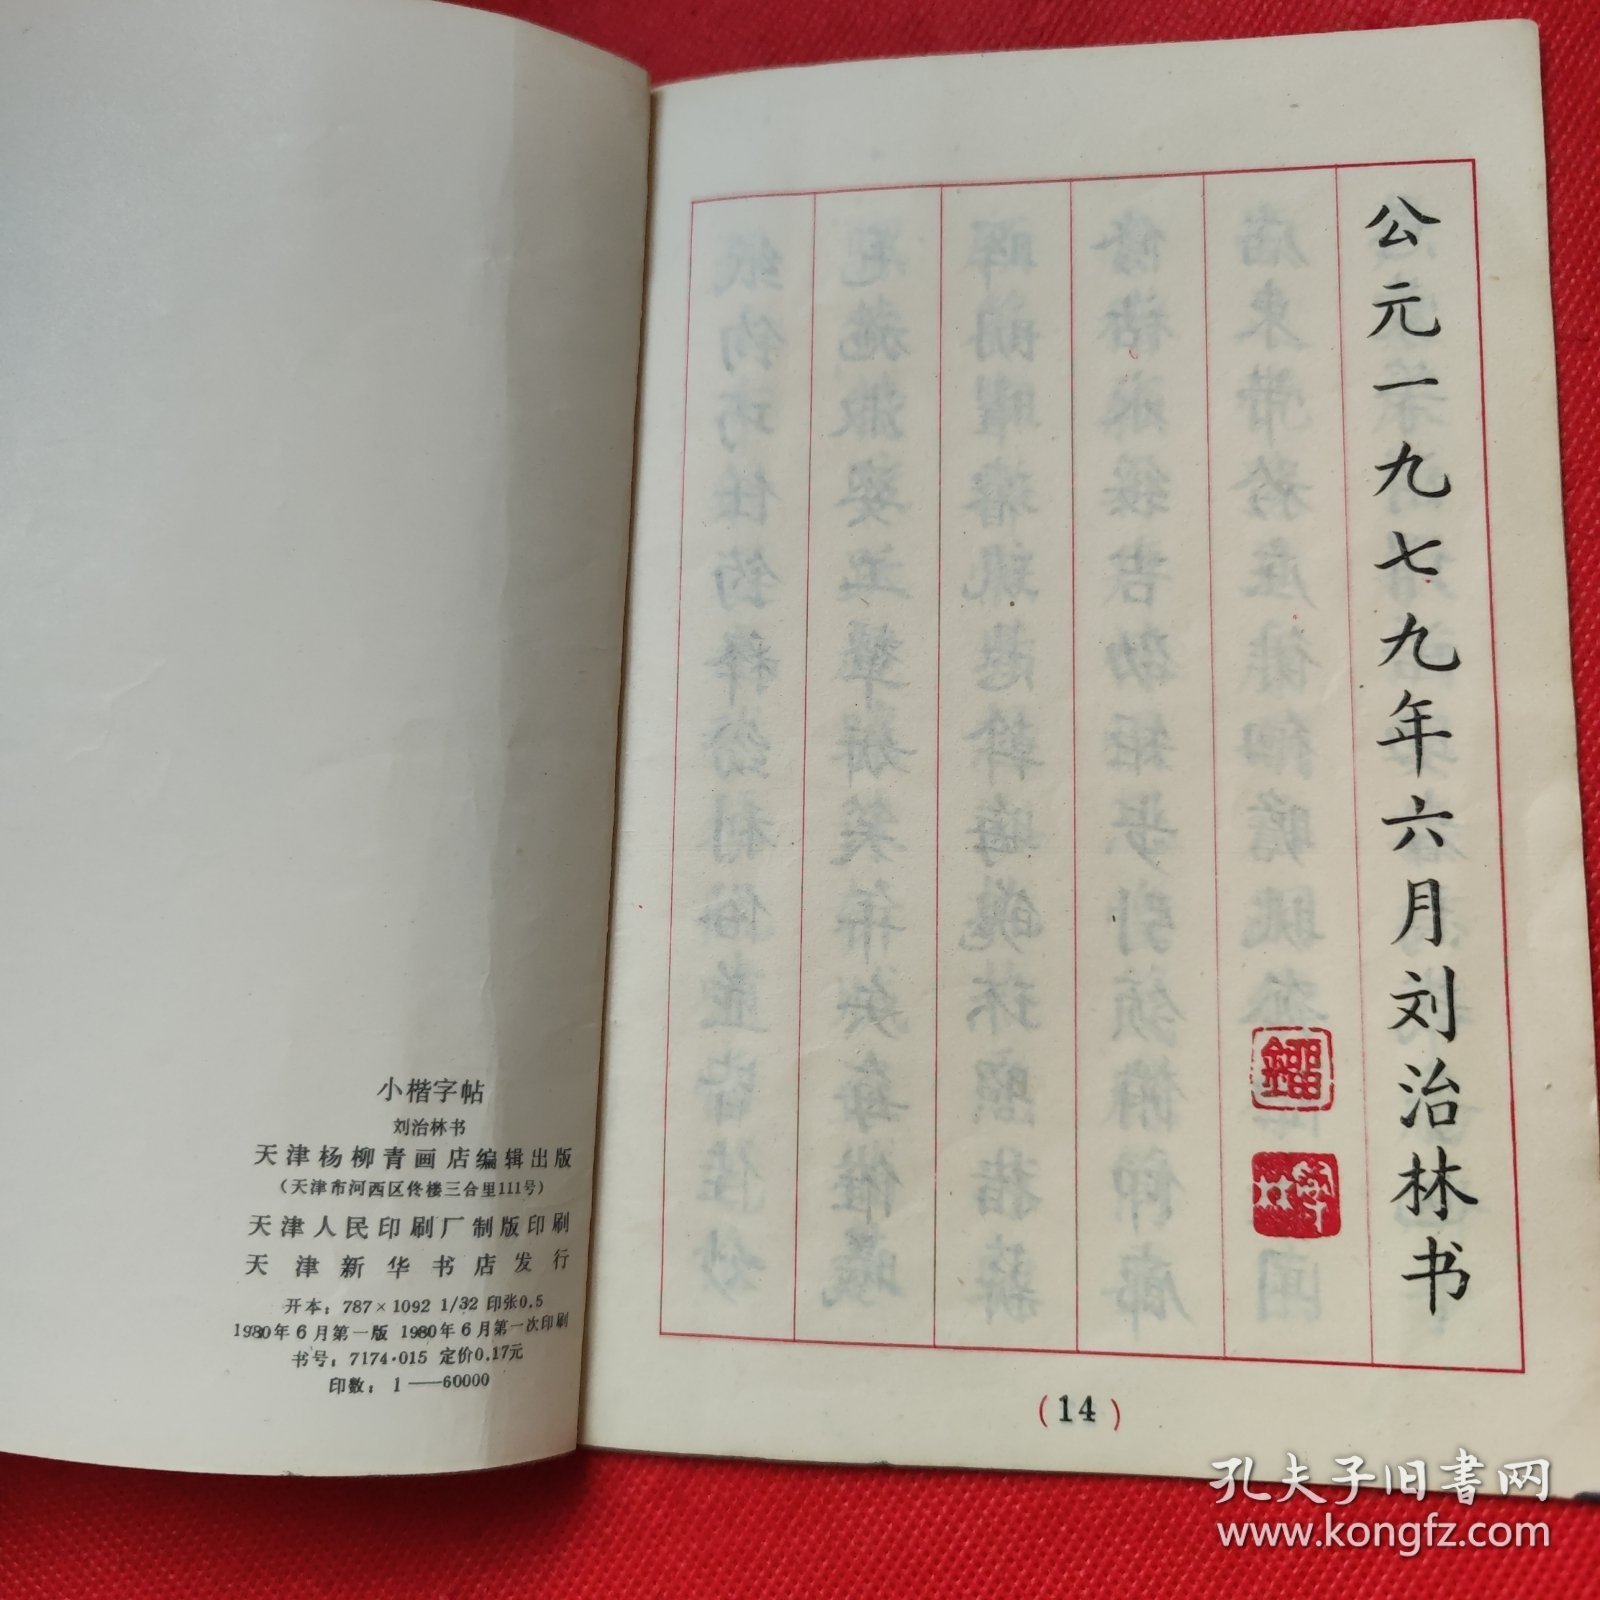 小楷字帖
刘治林书
天津杨柳青画店编辑出版
(天津市河西区佟楼三合里111号)
天津人民印刷厂制版印刷
天津新华书店发行
开本：787×1092 1/32 印张0.5
1980年6月第一版 1980年6月第一次印刷
书号：7174·015 定价0.17元
印数：1——60000
公元一九七九年六月刘治林书
(14)
孔夫子旧书网
www.kongfz.com